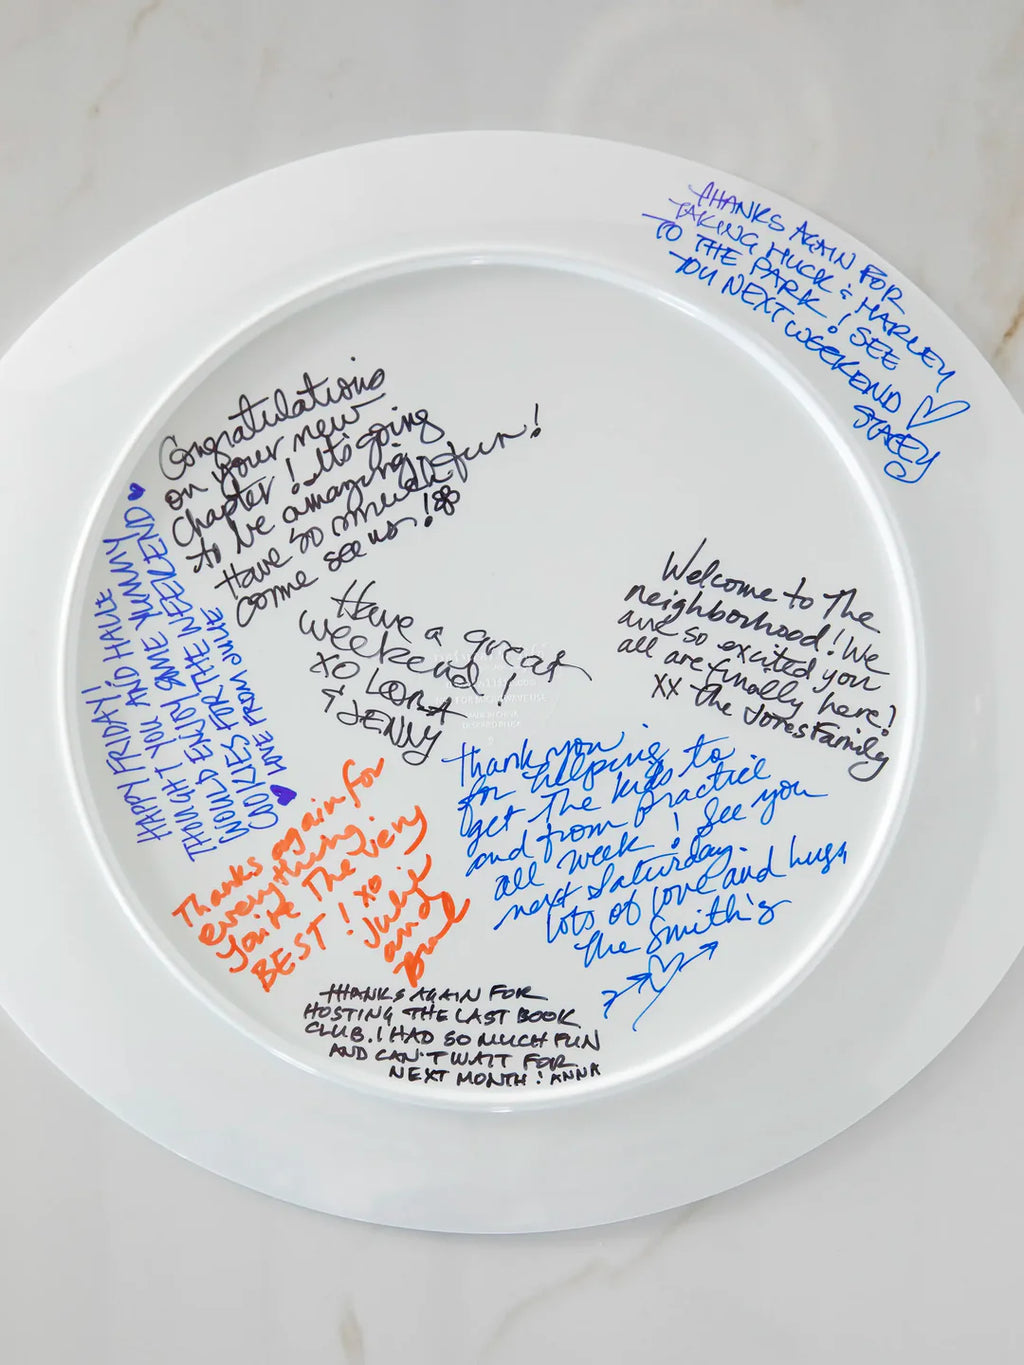 THANKS AGAIN FOR
TAKING HUCK & HARLEY
TO THE PARK! SEE
YOU NEXT WEEKEND ♡
STACEY
Congratulations
on your new
chapter! It's going
to be amazing.
Have so much fun!
come see us!
HAPPY FRIDAY!
THOUGHT YOU AND HALLE
WOULD ENJOY SOME YUMMY
COOKIES FOR THE WEEKEND ♥
♥ LOVE FROM JULIE
Have a great
weekend
XO LORA
& JENNY
Welcome to the
neighborhood! We
are so excited you
all are finally here!
XX the Jones Family
Thank you
for helping
get the kids to
and from practice
all week! See you
next Saturday.
lots of love and hugs
the Smith's
Thanks again for
everything.
You're the very
BEST! xo
Julie
and
THANKS AGAIN FOR
HOSTING THE LAST BOOK
CLUB. I HAD SO MUCH FUN
AND CAN'T WAIT FOR
NEXT MONTH! ANNA